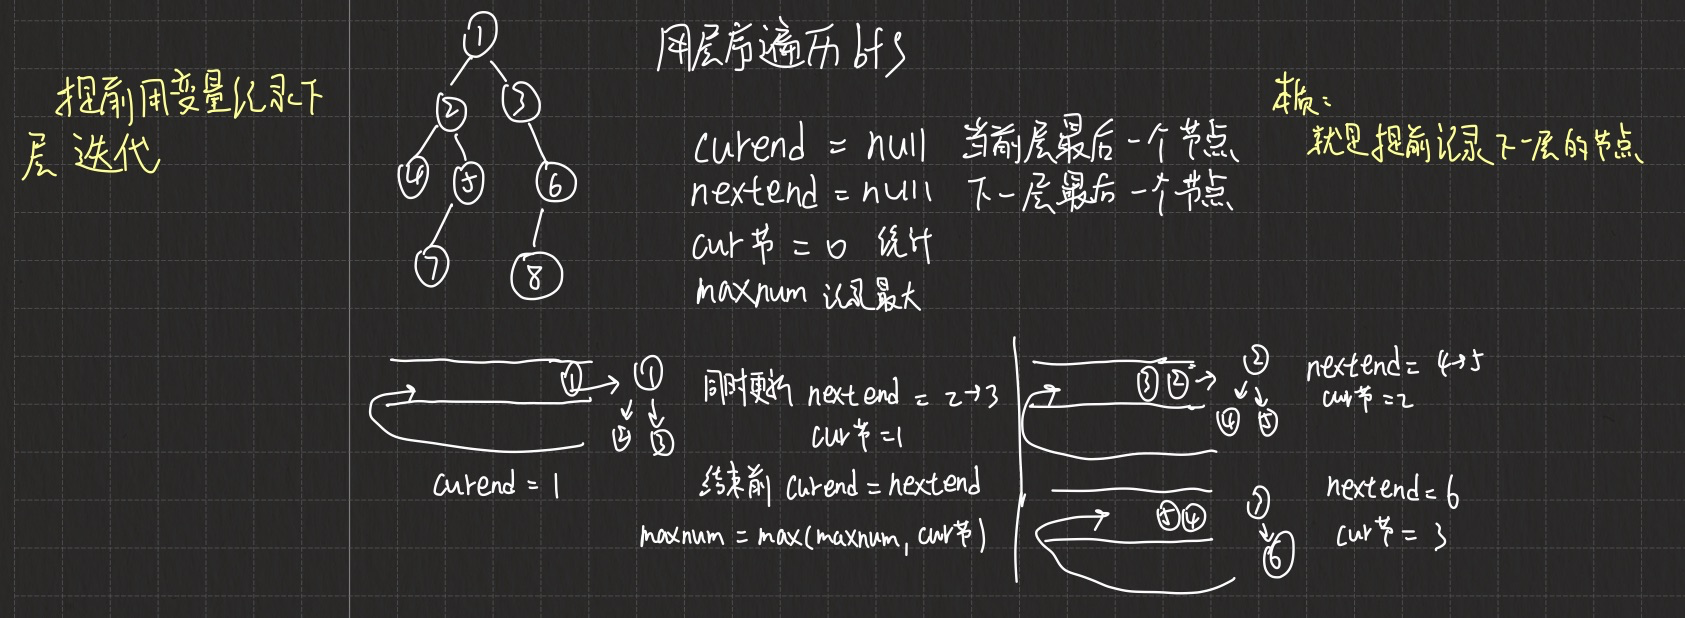 提前用变量记录下
层 迭代
用层序遍历 bfs
curend = null 当前层最后一个节点
nextend = null 下一层最后一个节点
cur节 = 0 统计
maxnum 记录最大
本质:
就是提前记录下一层的节点
1
2 3
4 5 6
7 8
1 → 1
2 3
curend = 1
同时更新 nextend = 2→3
cur节 = 1
结束前 curend = nextend
maxnum = max(maxnum, cur节)
3 2 → 2
4 5
nextend = 4→5
cur节 = 2
5 4
3
6
nextend = 6
cur节 = 3